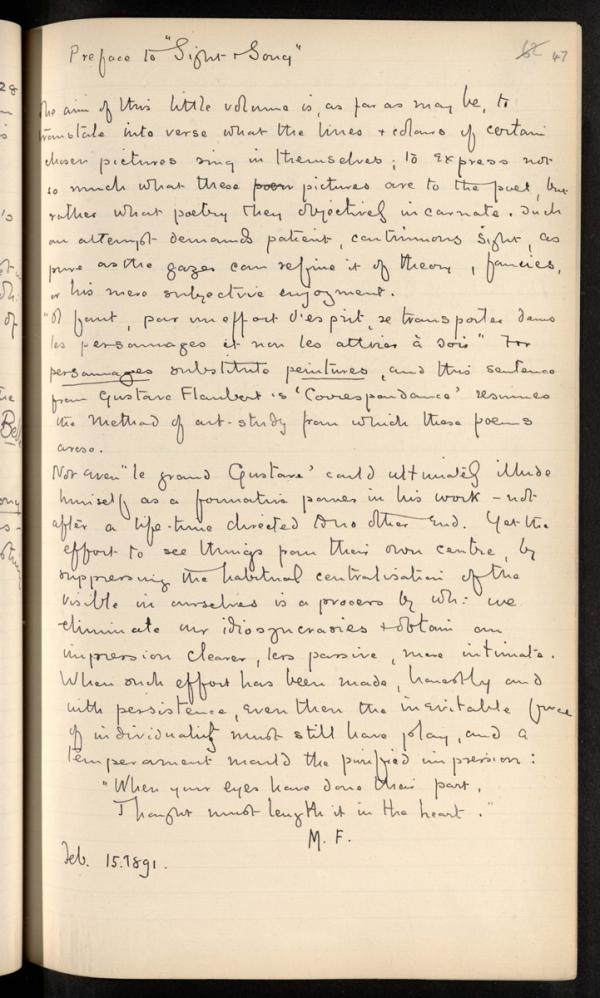 Preface to "Sight & Song"
62 47
The aim of this little volume is, as far as may be, to
translate into verse what the lines & colours of certain
chosen pictures sing in themselves; to express not
so much what these poem pictures are to the poet, but
rather what poetry they objectively incarnate. Such
an attempt demands patient, continuous sight, as
pure as the gazer can refine it of theory, fancies,
or his mere subjective enjoyment.
"Il faut, par un effort d'esprit, se transporter dans
les personnages et non les attirer à soi" For
personnages substitute peintures, and this sentence
from Gustave Flaubert's 'Correspondance' resumes
the method of art-study from which these poems
arose.
Not even "le grand Gustave' could ultimately illude
himself as a formative power in his work – not
after a life-time directed to no other end. Yet the
effort to see things from their own centre, by
suppressing the habitual centralisation of the
visible in ourselves is a process by wh: we
eliminate our idiosyncrasies & obtain an
impression clearer, less passive, more intimate.
When such effort has been made, honestly and
with persistence, even then the inevitable force
of individuality must still have play, and a
temperament mould the purified impression:
"When your eyes have done their part,
Thought must length it in the heart."
M. F.
Feb. 15. 1891.
28
's
of
Be